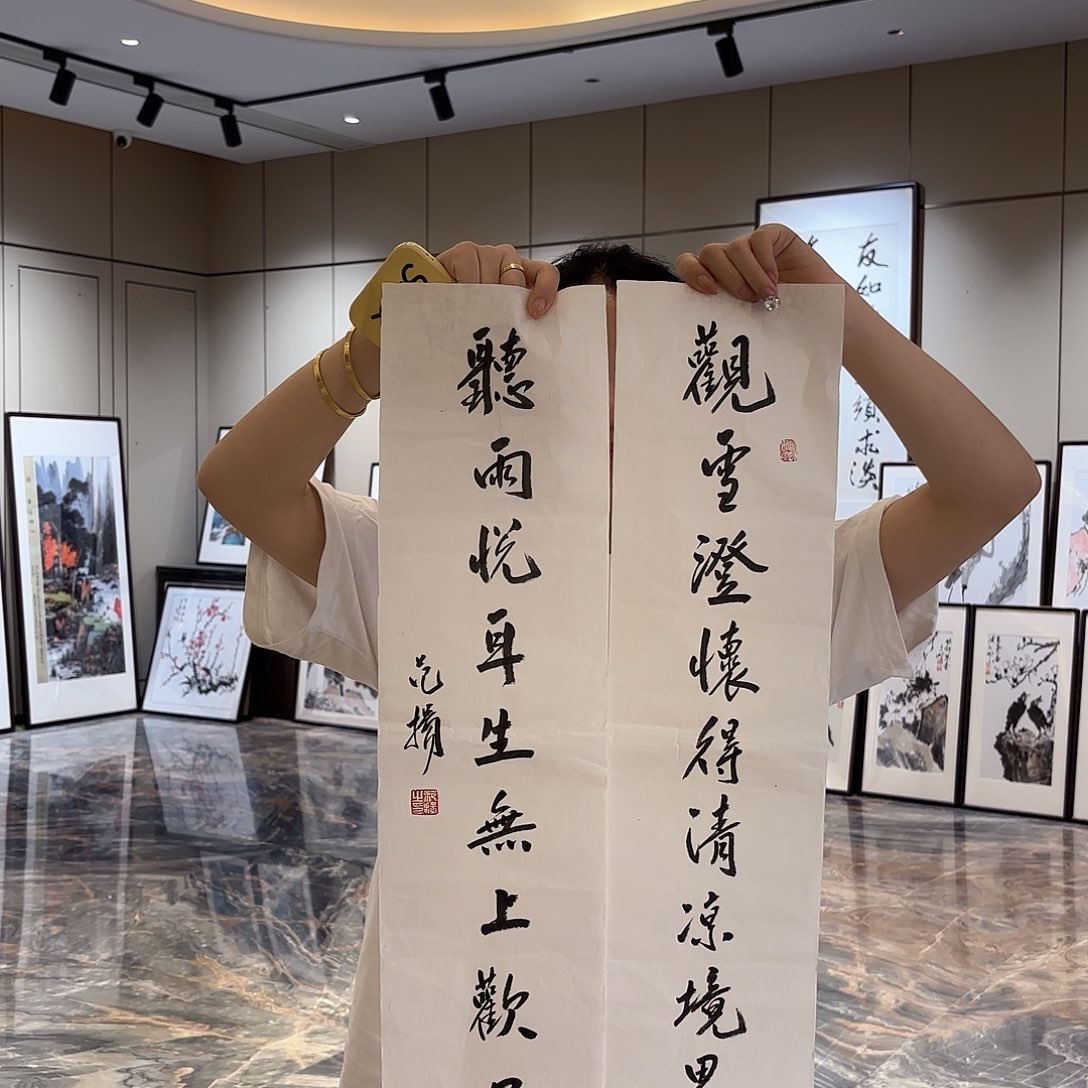 觀雪澄懷得清凉境界
聽雨悦耳生無上歡
范
友如
須求淡